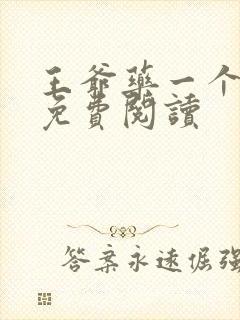 王爺藥一个
免費閱讀
答案永遠倔强